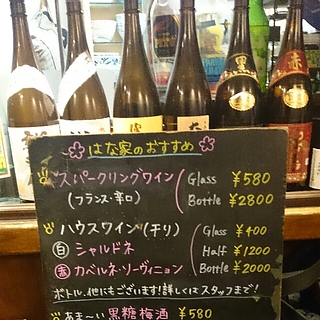 黒
赤
はな家のおすすめ
スパークリングワイン Glass ¥580
(フランス・辛口) Bottle ¥2800
ハウスワイン(チリ) Glass ¥400
白 シャルドネ Half ¥1200
赤 カベルネ・ソーヴィニョン Bottle ¥2000
ボトル、他にもございます!詳しくはスタッフまで!
あま〜い黒糖梅酒 ¥580